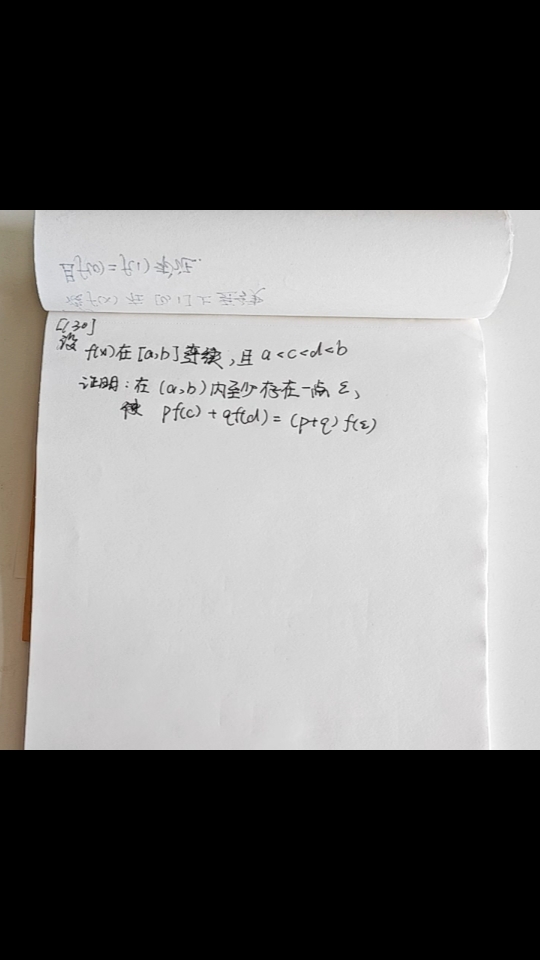 [130]
设 f(x)在[a,b]连续,且 a<c<d<b
证明:在(a,b)内至少存在一点 ε,
使 pf(c)+qf(d)=(p+q)f(ε)